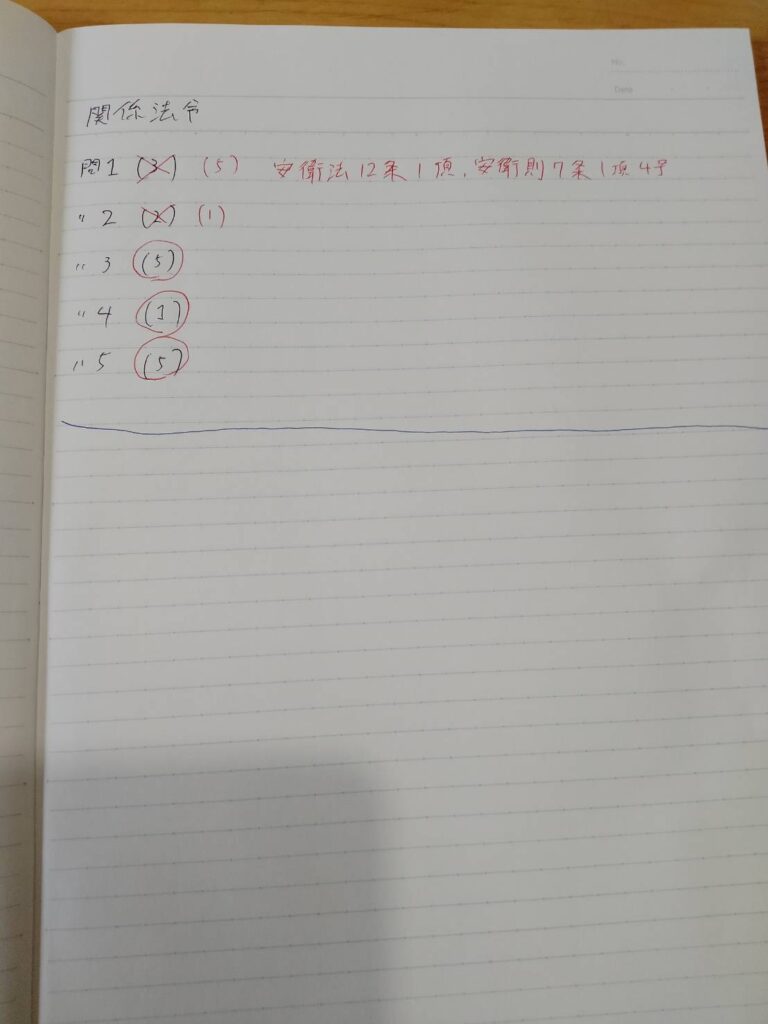 No.
Date
関係法令
問1 (3) (5) 安衛法12条1項、安衛則7条1項4号
〃2 (2) (1)
〃3 (5)
〃4 (1)
〃5 (5)